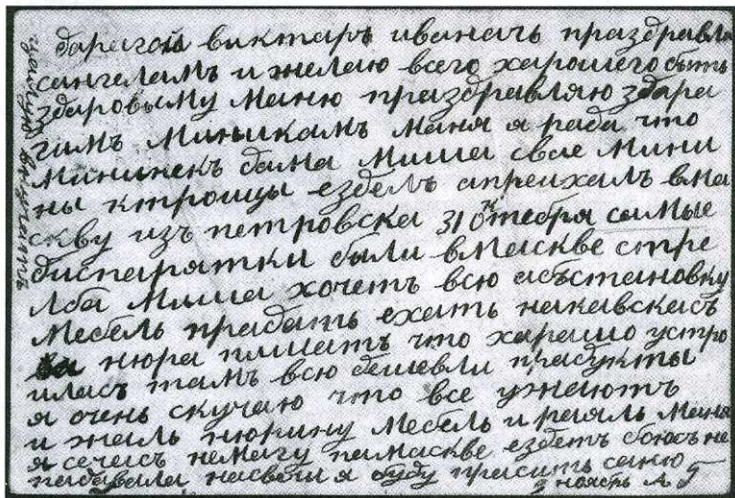 дарагой виктаръ иваначъ праздравля
сангеламъ и желаю всего харошего быть
здаровыму Маню праздравляю здара
гимъ Миникамъ Маня я рада что
Мининекъ дама Миша свае Мини
ны ктроицы езделъ апреихалъ вма
скву изъ петровска 31 октебря самые
биспарятки были вмаскве стре
лба Миша хочетъ всю абъстановку
Мебель прадать ехать накавскасъ
нюра пишатъ что харашо устро
иласъ тамъ всю дешевли прадукты
я очень скучаю что все узнаютъ
и жаль нюкину Мебель и рояль Маня
я сечасъ немагу памаскве ездетъ боюсъ не
насвечи я буду прасить саню
ноябръ